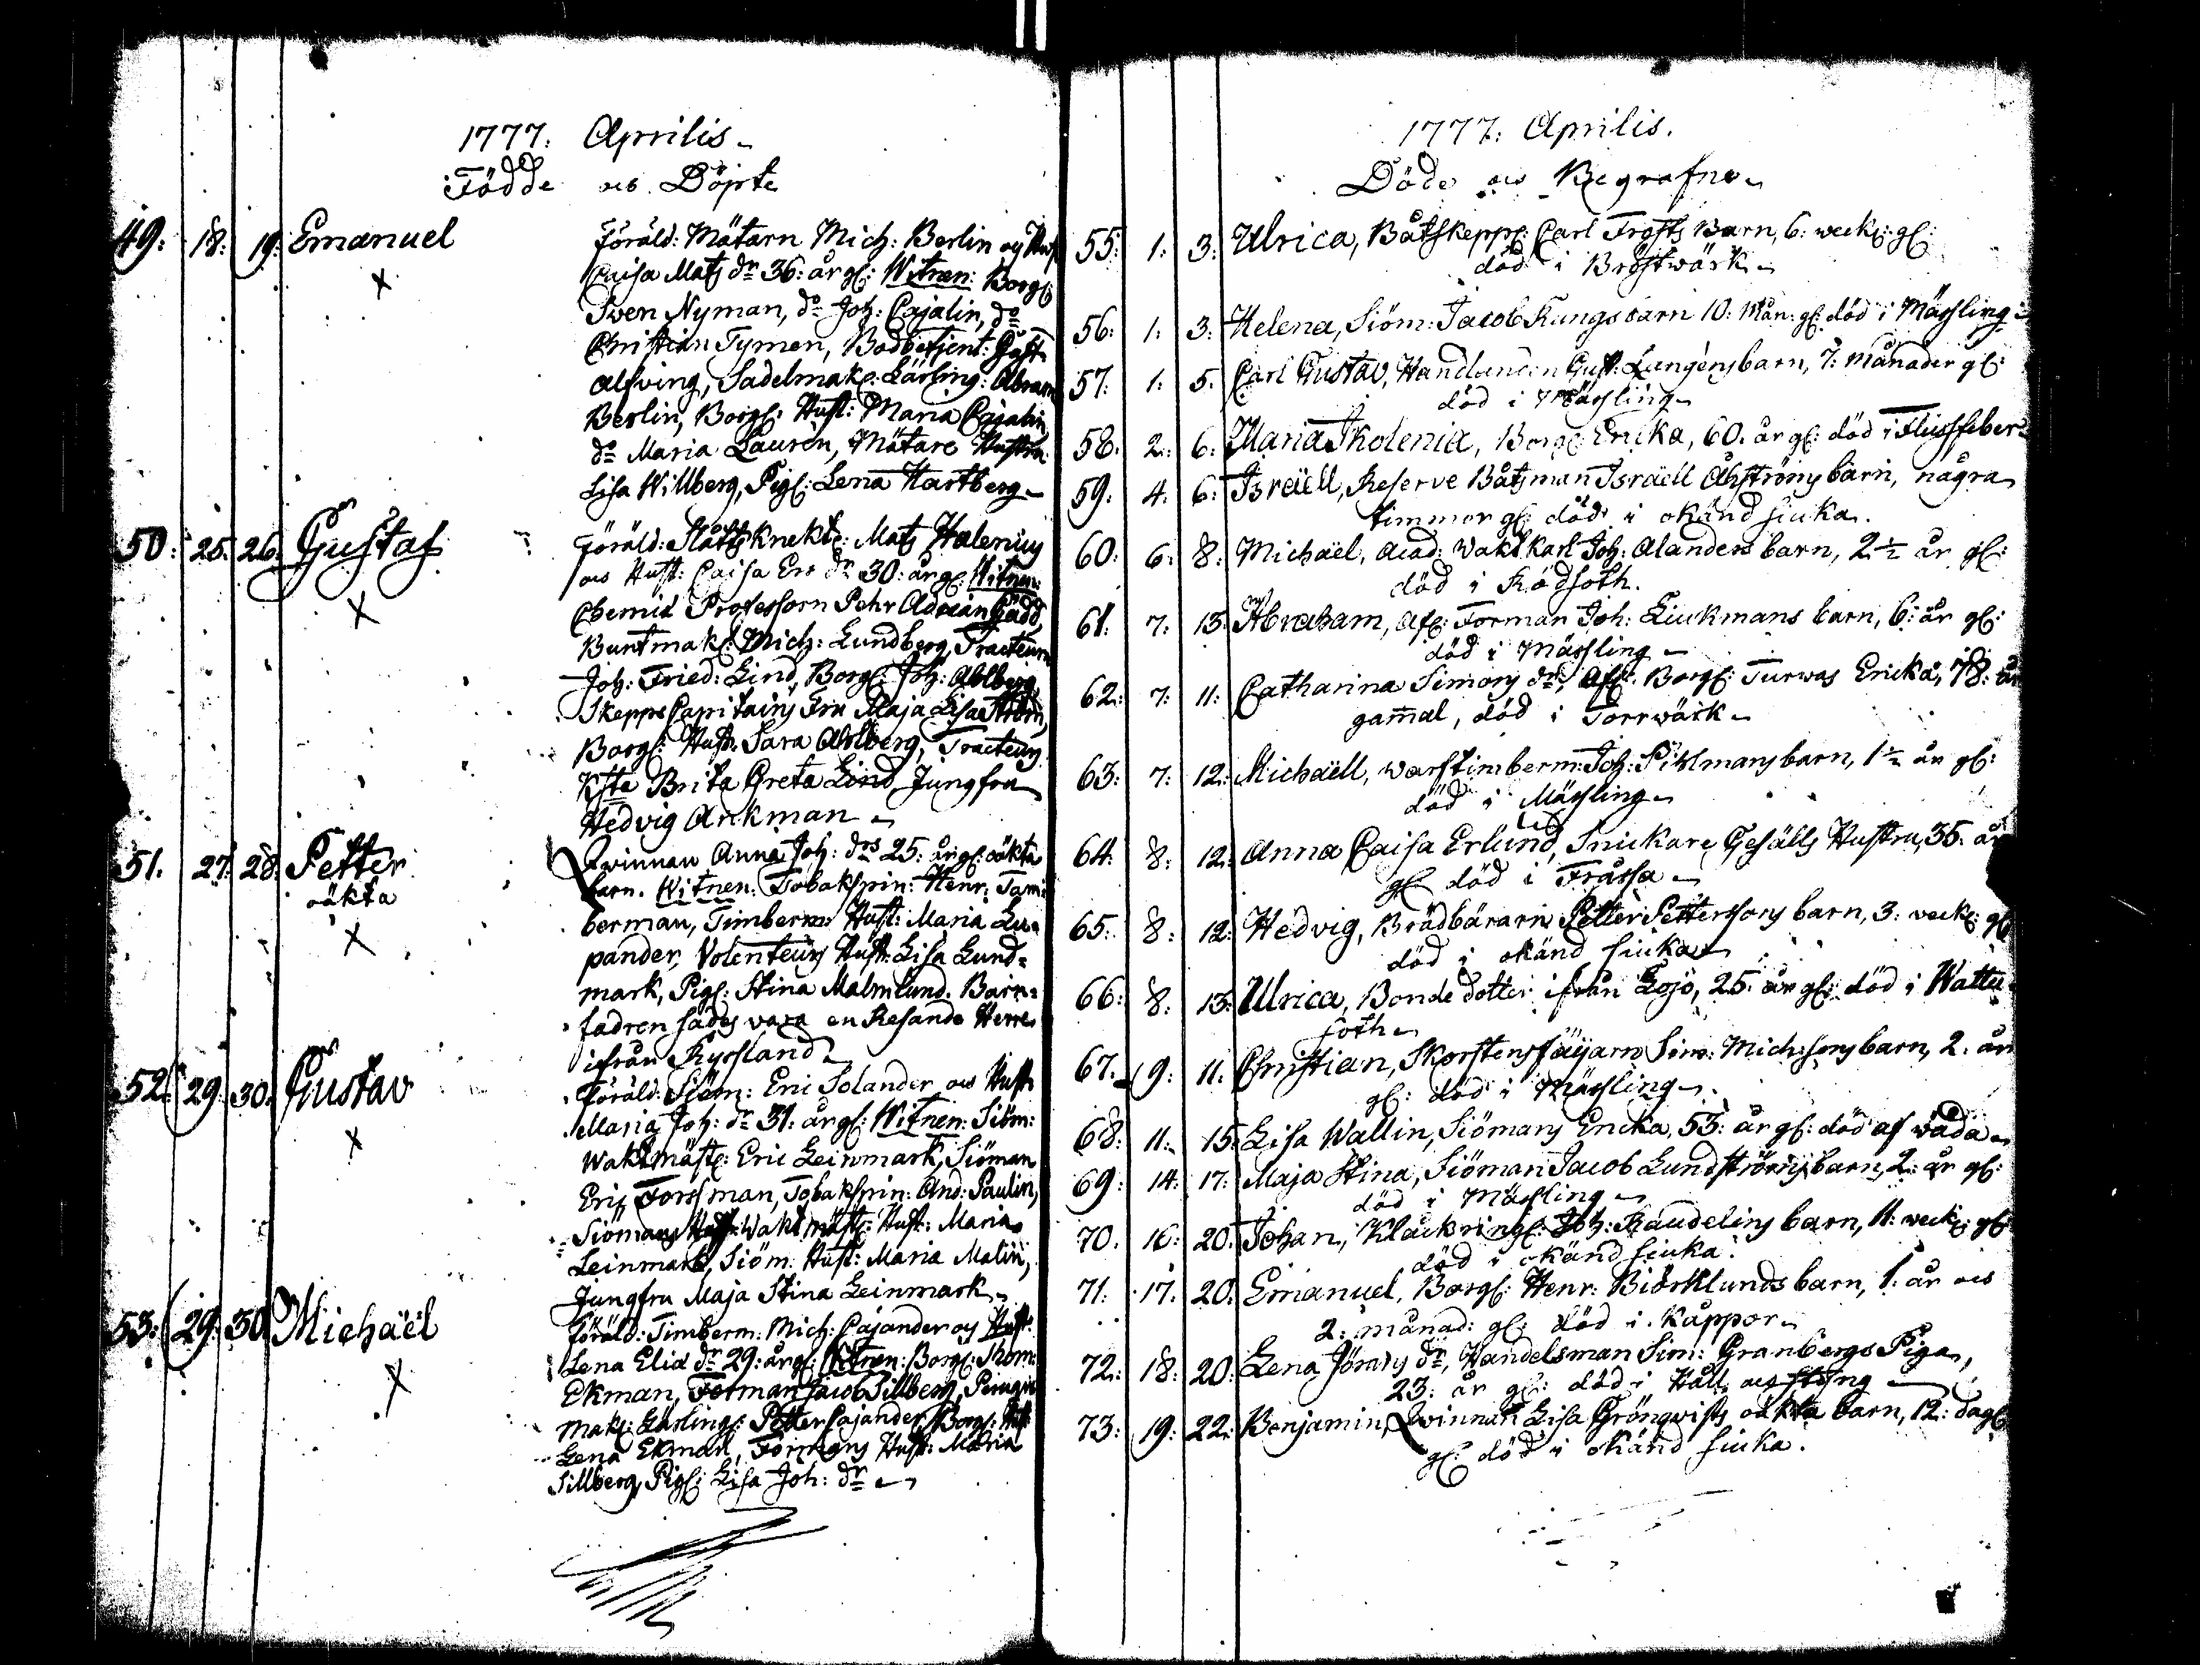 1777. Aprilis
Födde och Döpte
49: 18: 19: Emanuel
Föräld: Mätarn Mich: Berlin och Hust
Caisa Mats dr 36: år gl: Witnen: Borg:
Sven Nyman, do Joh: Cajalin, do
Christian Tymen, Bodbetjent: Gust:
Alfving, Sadelmak: Lärling: Abram
Berlin, Borg: Hust: Maria Cajalin
do Maria Lauren, Mätare Hustru
Lisa Willberg, Pig: Lena Hartberg
50: 25. 26. Gustaf
Föräld: Slåtts Knekt: Mats Halenius
och Hust: Caisa Ers dr 30: år gl: Witnen:
Chemiæ Professorn Pehr Adrian Gadd,
Buntmak: Mich: Lundberg, Tracteurn
Joh: Fried: Lind, Borg: Joh: Ahlberg
Skepps Capitains Fru Maja Lisa Ström,
Borg: Hust: Sara Ahlberg, Tracteurs
Brita Greta Lind, Jungfru
Hedvig Arckman
51. 27. 28: Petter
oäkta
Qwinnan Anna Joh: drs 25: år gl: oäkta
barn. Witnen: Tobakspin: Henr: Tam
berman, Timberm: Hust: Maria Lu=
pander, Volenteurs Hust: Lisa Lund=
mark, Pig: Stina Malmlund. Barn=
fadren sades vara en Resande Herre
ifrån Ryssland
52. 29. 30. Gustav
Föräld: Siöm: Eric Solander och Hust
Maria Joh: dr 31: år gl: Witnen: Siöm:
Waktmäst: Eric Leinmark, Siöman
Eric Forssman, Tobakspin: And: Paulin,
Siömans Waktmäst: Hust: Maria
Leinmark, Siöm: Hust: Maria Malin,
Jungfru Maja Stina Leinmark
53: 29: 30 Michaël
Föräld: Timberm: Mich: Cajander och Hust:
Lena Elia dr 29: år gl: Witnen: Borg: Thom:
Ekman, Forman Jacob Sillberg, Peruqu
mak: Lärling: Petter Cajander, Borg: Hust:
Lena Ekman, Formans Hust: Maria
Sillberg, Pig: Lisa Joh: dr
1777: Aprilis.
Döde och Begrafne
55: 1: 3: Ulrica, Båtskepp: Carl Frosts Barn, 6: weck: gl:
död i Bröstwärk
56: 1: 3: Helena, Siöm: Jacob Kungs barn 10: Mån: gl: död i Mässling
57: 1: 5. Carl Gustav, Handlanden Gust: Lungéns barn, 7: Månader gl:
död i Mässling
58: 2: 6: Maria Skolenia, Borg: Encka, 60. år gl: död i Flussfeber
59: 4: 6: Israëll, Reserve Båtsman Israëll Åhströms barn, några
timmor gl: död i okänd siuka.
60: 6: 8: Michaël, Acad: Waktkarl Joh: Alanders barn, 2 1/2 år gl:
död i Rödsoth.
61: 7: 13: Abraham, Afl: Forman Joh: Liuckmans barn, 6: år gl:
död i Mässling
62: 7: 11: Catharina Simons dr, Afl: Borg: Turwas Encka, 78: år
gam̄al, död i Torrwärk
63: 7: 12: Michaëll, Warfstimberm: Joh: Pihlmans barn, 1 1/2 år gl:
död i Mässling
64: 8: 12: Anna Caisa Erlund, Snickare Gesälls Hustru, 35. år
gl: död i Frässa
65: 8: 12: Hedvig, Brädbärarn Petter Petterssons barn, 3: weck: gl:
död i okänd siuka
66: 8: 13: Ulrica, Bonde dotter ifrån Lojo, 25: år gl: död i Wattu
soth
67. 9: 11. Christian, Skorstensfäijarn Sim: Mich:sons barn, 2. år
gl: död i Mässling
68: 11: 15: Lisa Wallin, Siömans Encka, 53: år gl: död af wåda
69: 14: 17: Maja Stina, Siöman Jacob Lundströms barn, 2: år gl:
död i Mässling
70. 16: 20: Johan, Klåckring: Joh: Raudelins barn, 11: weck: gl:
död i okänd siuka.
71: 17: 20: Emanuel, Borg: Henr: Biörklunds barn, 1. år och
2: månad: gl: död i Kåppor
72: 18: 20: Lena Jörans dr, Handelsman Sim: Granbergs Piga,
23: år gl: död i Håll och styng
73: 19: 22: Benjamin, Qwinnan Lisa Grönqvists oäkta barn, 12: dag:
gl: död i okänd siuka.